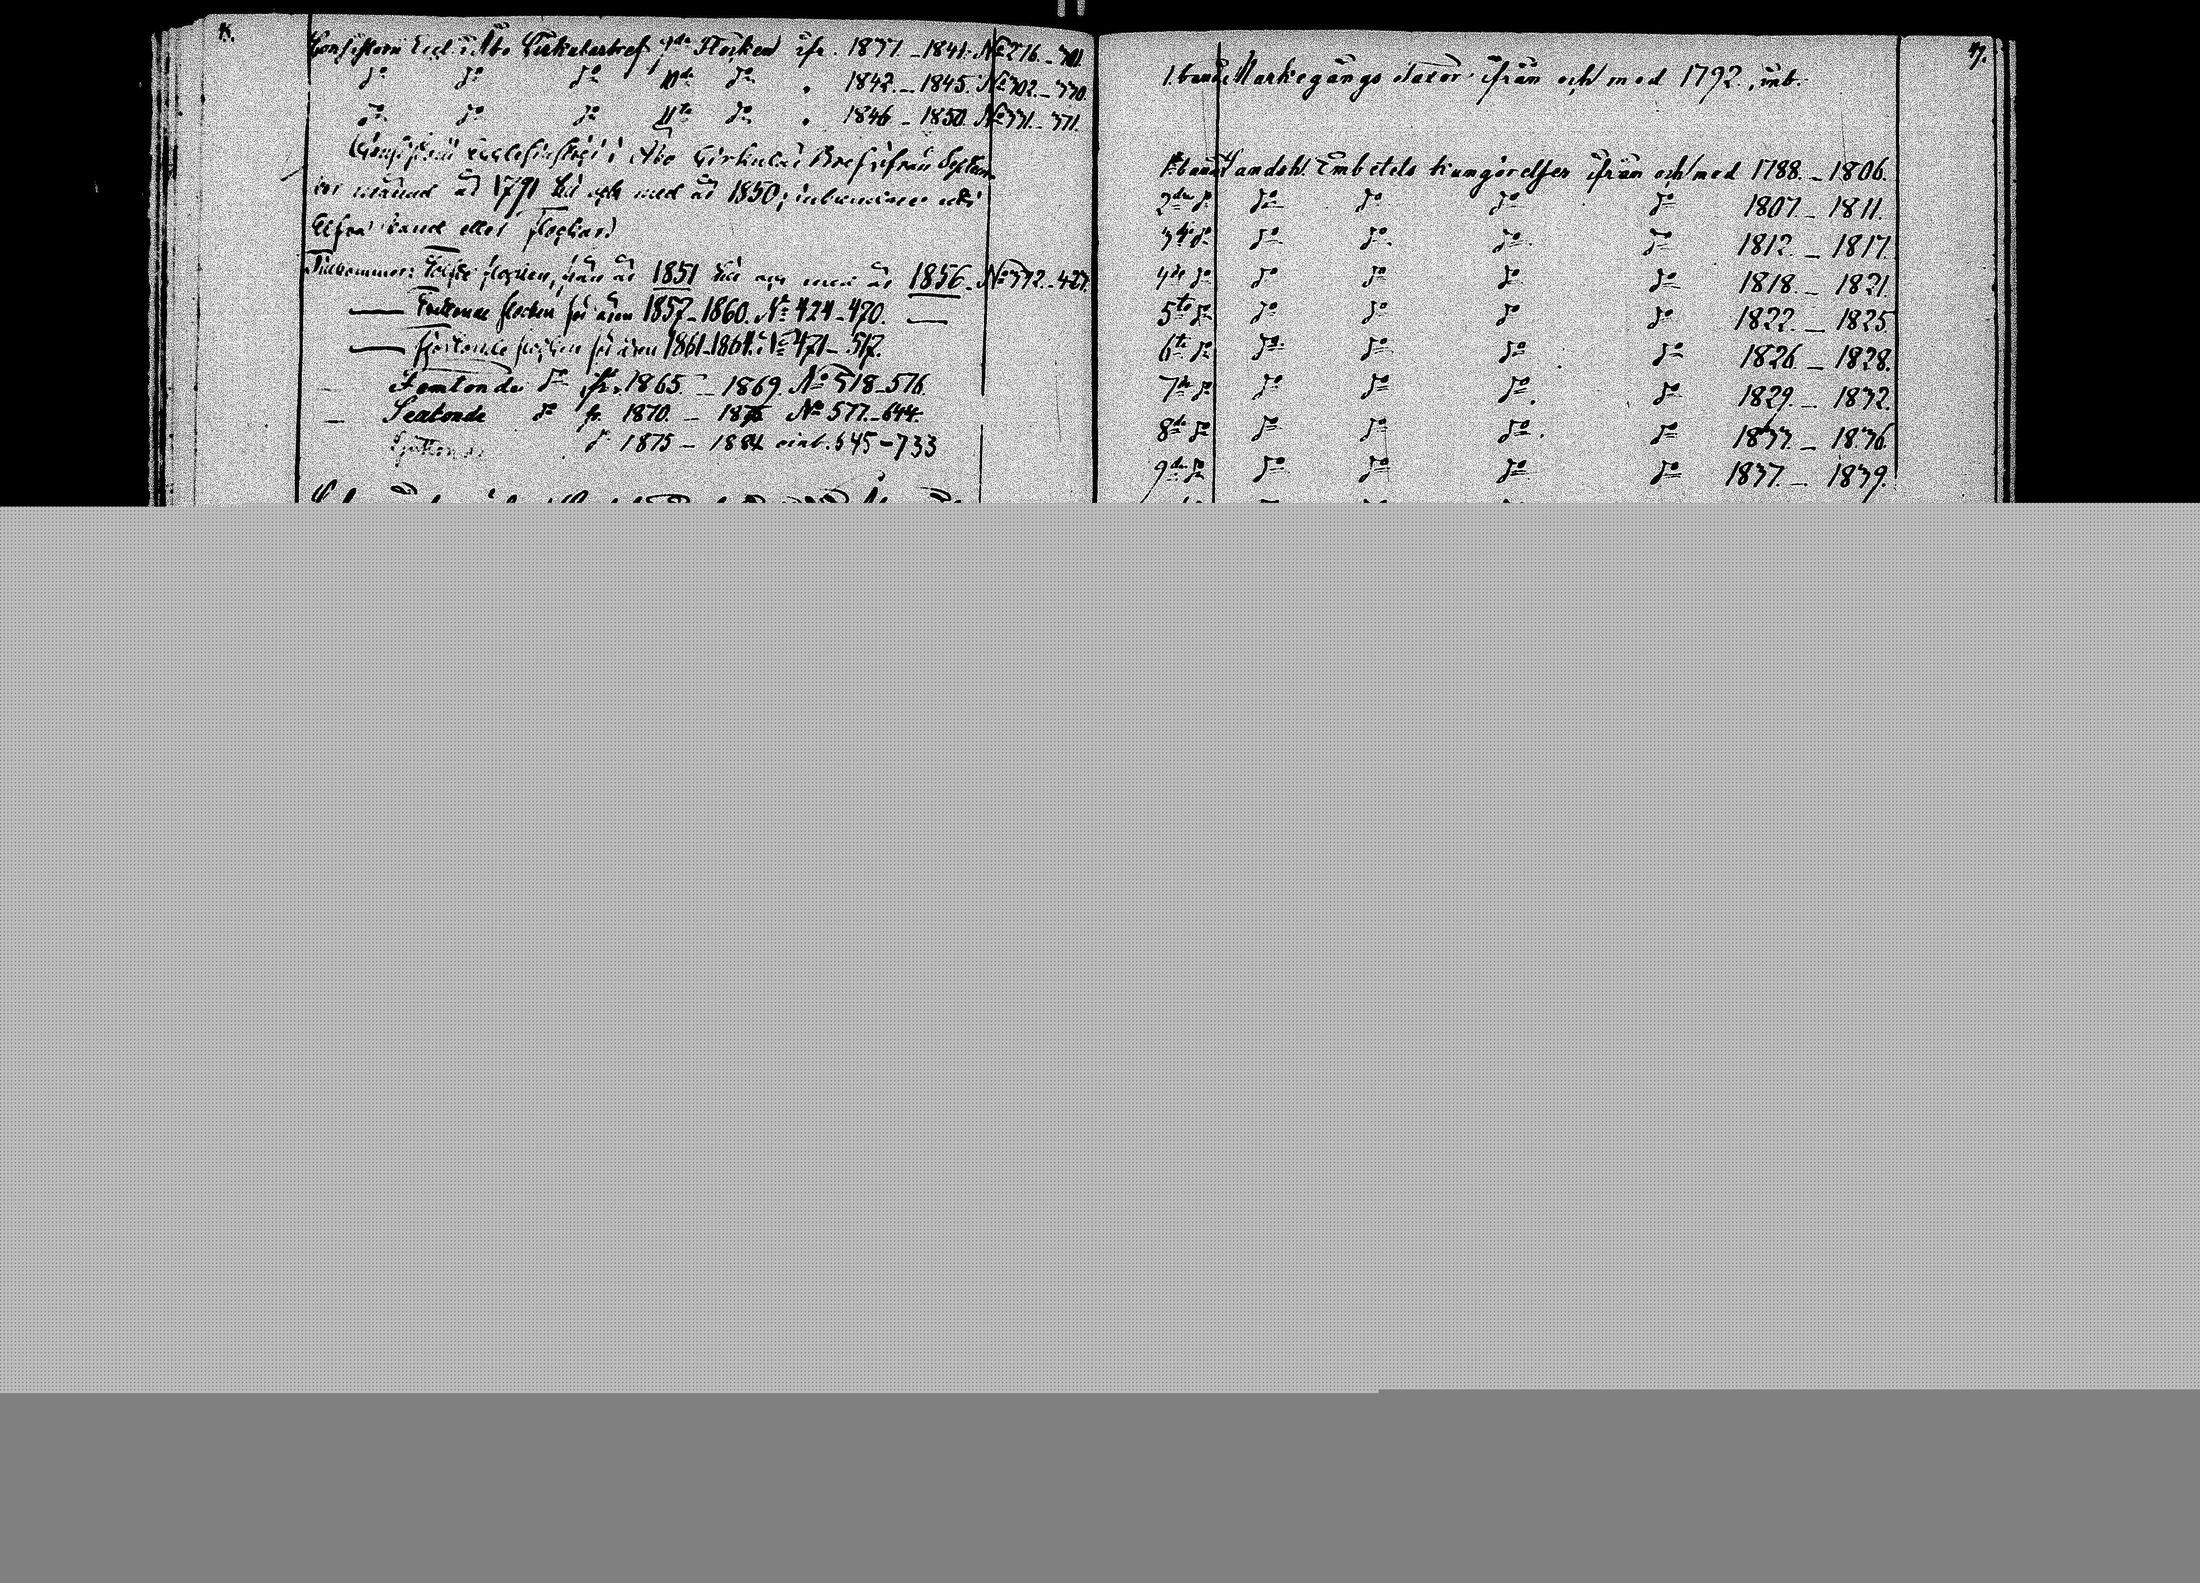 Consistorii Eccl. i Åbo Cirkulärbref 9de Flocken ifr. 1837 - 1841. No 276. - 301.
do do do 10de do 1842. - 1845. No 302. - 330.
do do do 11te do 1846 - 1850. No 331. - 371.
Consistorii Ecclesiastici i Åbo Cirkulär Bref ifrån Septem-
ber månad år 1791 till och med år 1850; inbundne uti
Elfva band eller Flockar.
Tillkommer: Tolfte flocken, från år 1851 till och med år 1856. No 372. - 423.
Trettonde flocken för åren 1857 - 1860. No 424 - 470.
Fjortonde flocken för åren 1861 - 1864. No 471 - 517.
Femtonde do fr. 1865. - 1869. No 518 - 576.
Sextonde do fr. 1870. - No 577. - 644.
Sjuttonde do 1875 - 1884 einl. 645 - 733
47.
1. band. Markegångs Taxor ifrån och med 1792., inb.
1. band Landsh. Embetets Kungörelser ifrån och med 1788. - 1806.
2dra do do do do do 1807. - 1811.
3dje do do do do do 1812. - 1817.
4de do do do do do 1818. - 1821.
5te do do do do do 1822. - 1825
6te do do do do do 1826. - 1828.
7de do do do do do 1829. - 1832.
8de do do do do do 1833. - 1836.
9de do do do do do 1837. - 1839.